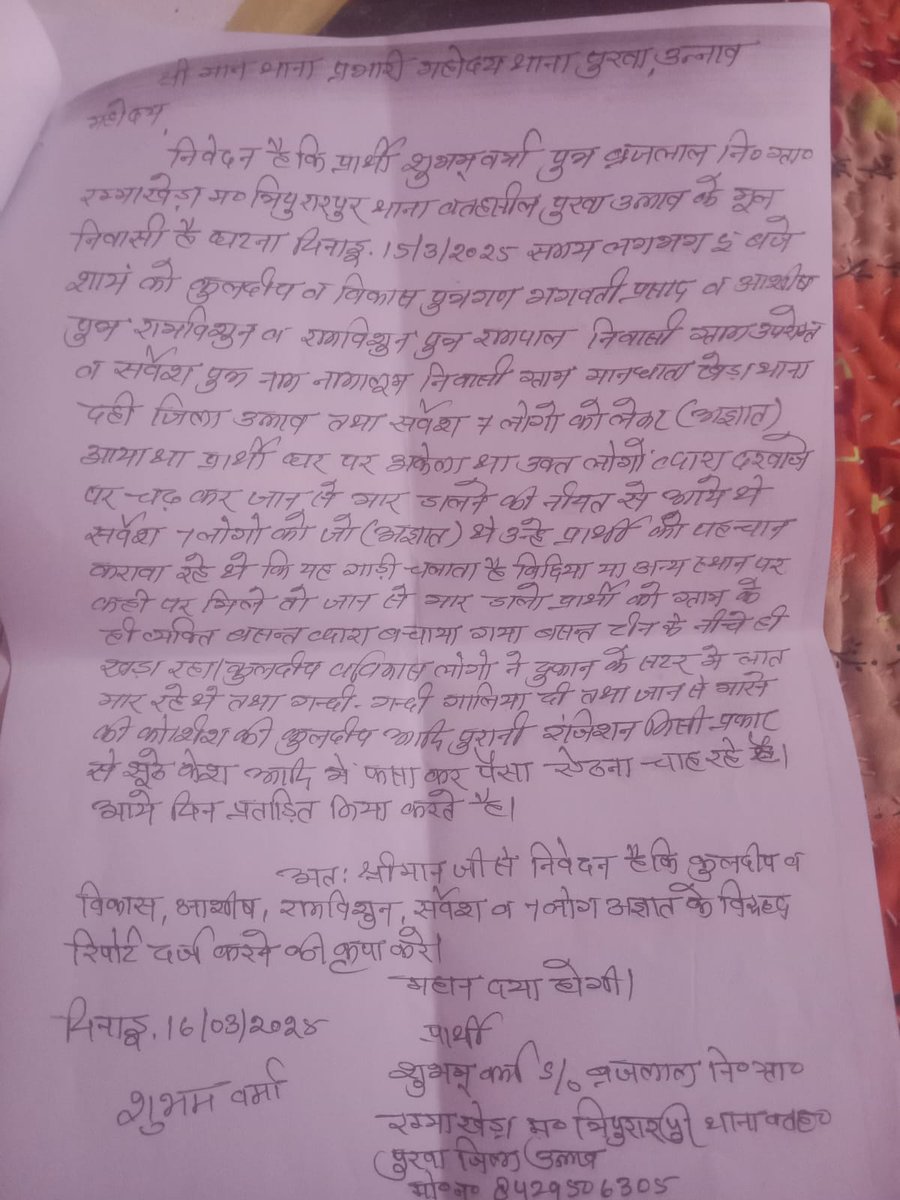 श्री मान थाना प्रभारी महोदय थाना पुरवा, उन्नाव
महोदय,
निवेदन है कि प्रार्थी शुभम् वर्मा पुत्र ब्रजलाल नि० ग्रा०
रम्माखेड़ा म० त्रिपुरारपुर थाना व तहसील पुरवा उन्नाव के मूल
निवासी है घटना दिनाङ्क. 15/3/2025 समय लगभग 6 बजे
शाम को कुलदीप व विकास पुत्रगण भगवती प्रसाद व आशीष
पुत्र रामविशुन व रामविशुन पुत्र रामपाल निवासी ग्राम उपरोक्त
व सर्वेश पुत्र नाम नामालूम निवासी ग्राम मानधाता खेड़ा थाना
दही जिला उन्नाव तथा सर्वेश 7 लोगो को लेकर (अज्ञात)
आया था प्रार्थी घर पर अकेला था उक्त लोगों द्वारा दरवाजे
पर चढ़ कर जान से मार डालने की नीयत से आये थे
सर्वेश 7 लोगो को जो (अज्ञात) थे उन्हे प्रार्थी की पहचान
करावा रहे थे कि यह गाड़ी चलाता है बिदिया या अन्य स्थान पर
कही पर मिले तो जान से मार डालो प्रार्थी को ग्राम के
ही व्यक्ति बसन्त द्वारा बचाया गया बसन्त टीन के नीचे ही
खड़ा रहा। कुलदीप व विकास लोगो ने दुकान के सटर मे लात
मार रहे थे तथा गन्दी-गन्दी गालिया दी तथा जान से मारने
की कोशीश की कुलदीप आदि पुरानी रंजिशन किसी प्रकार
से झूठे केश आदि मे फसा कर पैसा ऐठना चाह रहे है।
आये दिन प्रताड़ित किया करते है।
अतः श्रीमान् जी से निवेदन है कि कुलदीप व
विकास, आशीष, रामविशुन, सर्वेश व 7 लोग अज्ञात के विरुद्ध
रिपोर्ट दर्ज करने की कृपा करे।
महान दया होगी।
दिनाङ्क. 16/03/2025
प्रार्थी
शुभम् वर्मा S/o ब्रजलाल नि० ग्रा०
शुभम वर्मा
रम्माखेड़ा म० त्रिपुरारपुर थाना व तह०
पुरवा जिला उन्नाव
मो० न० 8429506305